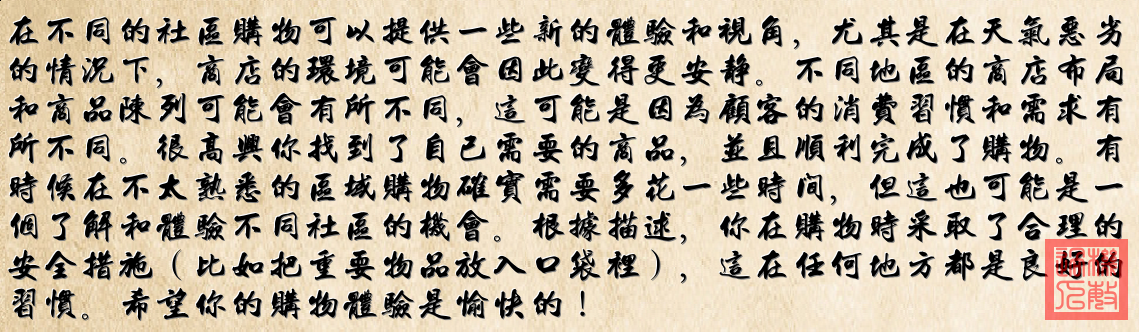 在不同的社區購物可以提供一些新的體驗和視角，尤其是在天氣惡劣
的情況下，商店的環境可能會因此變得更安靜。不同地區的商店布局
和商品陳列可能會有所不同，這可能是因為顧客的消費習慣和需求有
所不同。很高興你找到了自己需要的商品，並且順利完成了購物。有
時候在不太熟悉的區域購物確實需要多花一些時間，但這也可能是一
個了解和體驗不同社區的機會。根據描述，你在購物時采取了合理的
安全措施（比如把重要物品放入口袋裡），這在任何地方都是良好的
習慣。希望你的購物體驗是愉快的！